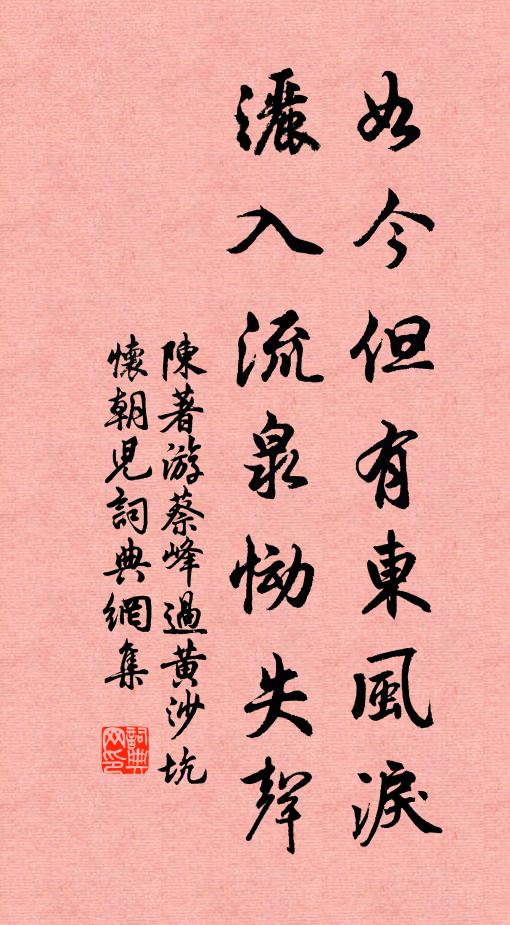 如今但有東風淚
灑入流泉慟失聲
陳著游蔡峰過黃沙坑
懷朝児詞典網集
詞典网印